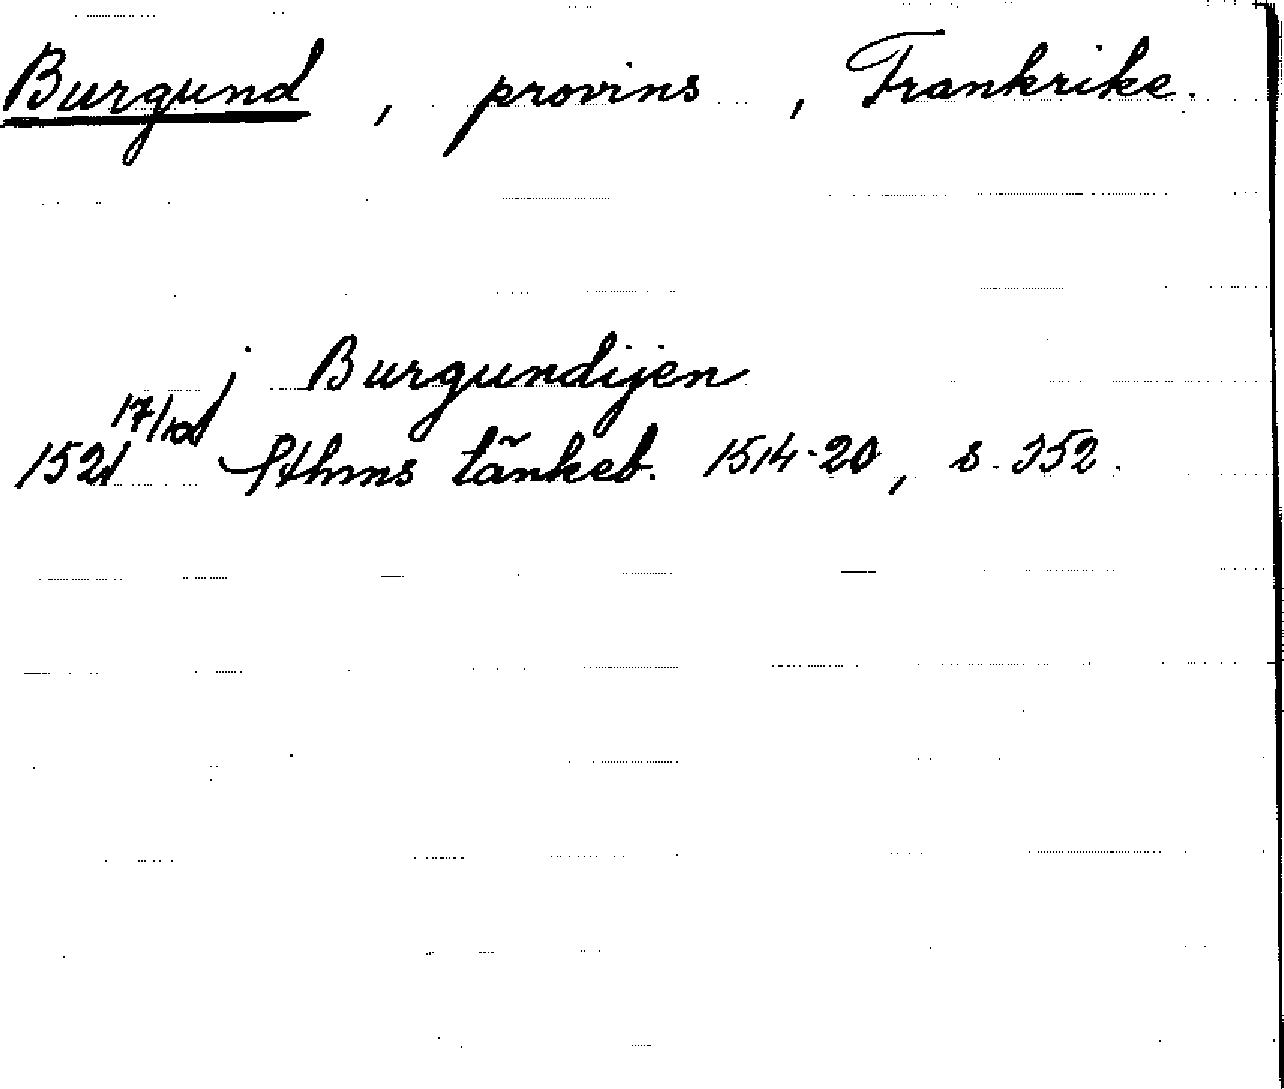 Burgund , provins , Frankrike.
j Burgundijen
1521 17/10 Sthms tänkeb. 1514-20, s. 352.